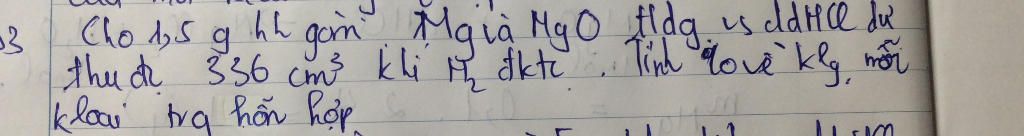 13 Cho 1,5 g hh gồm Mg và MgO tldg vs ddHCl dư
thu đc 336 cm³ khí H₂ đktc. Tính % về klg mỗi
kloai trg hỗn hợp